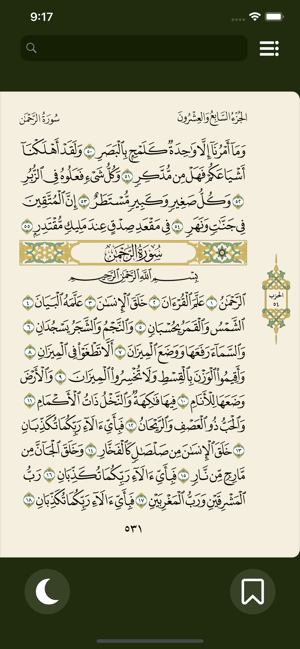 9:17
سورة الرحمن
الجزء السابع والعشرون
وَمَا أَمْرُنَا إِلَّا وَاحِدَةٌ كَلَمْحٍ بِالْبَصَرِ ٥٠ وَلَقَدْ أَهْلَكْنَا
أَشْيَاعَكُمْ فَهَلْ مِن مُّدَّكِرٍ ٥١ وَكُلُّ شَيْءٍ فَعَلُوهُ فِي الزُّبُرِ
٥٢ وَكُلُّ صَغِيرٍ وَكَبِيرٍ مُّسْتَطَرٌ ٥٣ إِنَّ الْمُتَّقِينَ
فِي جَنَّاتٍ وَنَهَرٍ ٥٤ فِي مَقْعَدِ صِدْقٍ عِندَ مَلِيكٍ مُّقْتَدِرٍ ٥٥
سورة الرحمن
بِسْمِ اللَّهِ الرَّحْمَٰنِ الرَّحِيمِ
الرَّحْمَٰنُ ١ عَلَّمَ الْقُرْءَانَ ٢ خَلَقَ الْإِنسَٰنَ ٣ عَلَّمَهُ الْبَيَانَ ٤
الشَّمْسُ وَالْقَمَرُ بِحُسْبَانٍ ٥ وَالنَّجْمُ وَالشَّجَرُ يَسْجُدَانِ ٦
وَالسَّمَاءَ رَفَعَهَا وَوَضَعَ الْمِيزَانَ ٧ أَلَّا تَطْغَوْا فِي الْمِيزَانِ ٨
وَأَقِيمُوا الْوَزْنَ بِالْقِسْطِ وَلَا تُخْسِرُوا الْمِيزَانَ ٩ وَالْأَرْضَ
وَضَعَهَا لِلْأَنَامِ ١٠ فِيهَا فَٰكِهَةٌ وَالنَّخْلُ ذَاتُ الْأَكْمَامِ ١١
وَالْحَبُّ ذُو الْعَصْفِ وَالرَّيْحَانُ ١٢ فَبِأَيِّ ءَالَاءِ رَبِّكُمَا تُكَذِّبَانِ
١٣ خَلَقَ الْإِنسَٰنَ مِن صَلْصَٰلٍ كَالْفَخَّارِ ١٤ وَخَلَقَ الْجَانَّ مِن
مَّارِجٍ مِّن نَّارٍ ١٥ فَبِأَيِّ ءَالَاءِ رَبِّكُمَا تُكَذِّبَانِ ١٦ رَبُّ
الْمَشْرِقَيْنِ وَرَبُّ الْمَغْرِبَيْنِ ١٧ فَبِأَيِّ ءَالَاءِ رَبِّكُمَا تُكَذِّبَانِ ١٨
الحزب
٥٤
٥٣١